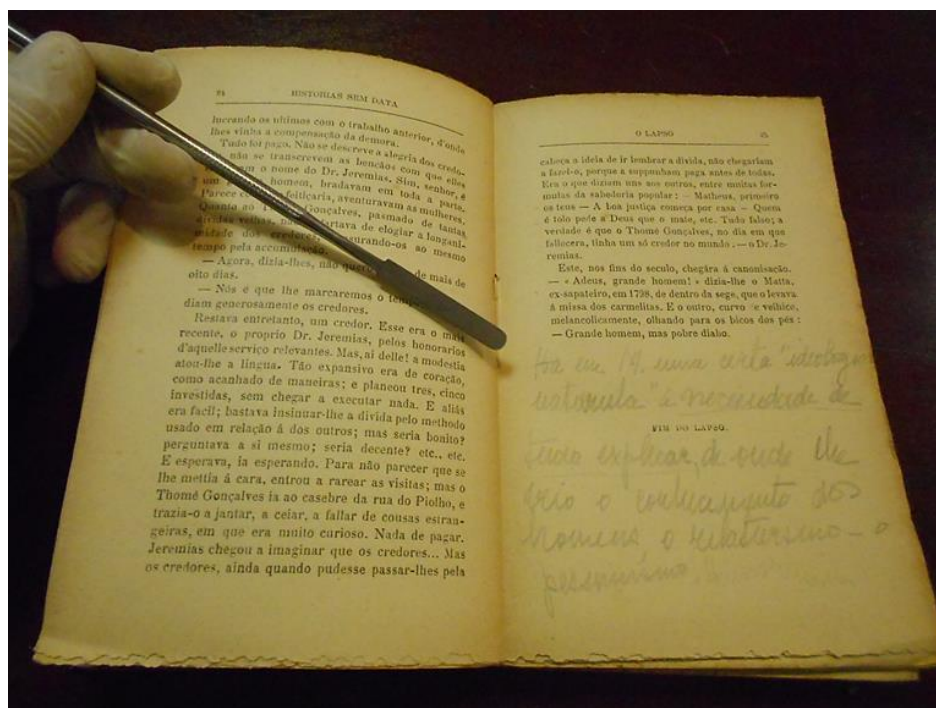 84 HISTORIAS SEM DATA
lucrando os ultimos com o trabalho anterior, d'onde
lhes vinha a compensação da demora.
Tudo foi pago. Não se descreve a alegria dos credo-
não se transcrevem as bençãos com que elles
o nome do Dr. Jeremias. Sim, senhor, é
um homem, bradavam em toda a parte.
Parece feitiçaria, aventuravam as mulheres.
Quanto ao Gonçalves, pasmado de tantas
dividas velhas, não se fartava de elogiar a longani-
midade dos credores, ao mesmo
tempo pela accumulação.
— Agora, dizia-lhes, não de mais de
oito dias.
— Nós é que lhe marcaremos o tempo,
diam generosamente os credores.
Restava entretanto, um credor. Esse era o mais
recente, o proprio Dr. Jeremias, pelos honorarios
d'aquelle serviço relevantes. Mas, ai delle! a modestia
atou-lhe a lingua. Tão expansivo era de coração,
como acanhado de maneiras; e planeou tres, cinco
investidas, sem chegar a executar nada. E aliás
era facil; bastava insinuar-lhe a divida pelo methodo
usado em relação á dos outros; mas seria bonito?
perguntava a si mesmo; seria decente? etc., etc.
E esperava, ia esperando. Para não parecer que se
lhe mettia á cara, entrou a rarear as visitas; mas o
Thomé Gonçalves ia ao casebre da rua do Piolho, e
trazia-o a jantar, a ceiar, a fallar de cousas estran-
geiras, em que era muito curioso. Nada de pagar.
Jeremias chegou a imaginar que os credores... Mas
os credores, ainda quando pudesse passar-lhes pela
O LAPSO
cabeça a ideia de ir lembrar a divida, não chegariam
a fazel-o, porque a suppunham paga antes de todas.
Era o que diziam uns aos outros, entre muitas for-
mulas da sabedoria popular: — Matheus, primeiro
os teus — A boa justiça começa por casa — Quem
é tolo pede a Deus que o mate, etc. Tudo falso; a
verdade é que o Thomé Gonçalves, no dia em que
fallecera, tinha um só credor no mundo: — o Dr. Je-
remias.
Este, nos fins do seculo, chegára á canonisação.
— « Adeus, grande homem! » dizia-lhe o Matta,
ex-sapateiro, em 1798, de dentro da sege, que o levava
á missa dos carmelitas. E o outro, curvo de velhice,
melancolicamente, olhando para os bicos dos pés:
— Grande homem, mas pobre diabo.
Ha em 19, uma certa "ideologia
naturista" á necessidade de
FIM DO LAPSO.
tudo explicar, de onde lhe
o conhecimento dos
homens o relativismo — o
pessimismo